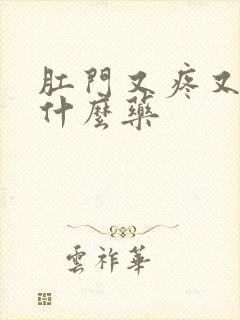 肛門又疼又
什麼藥
雲祚華